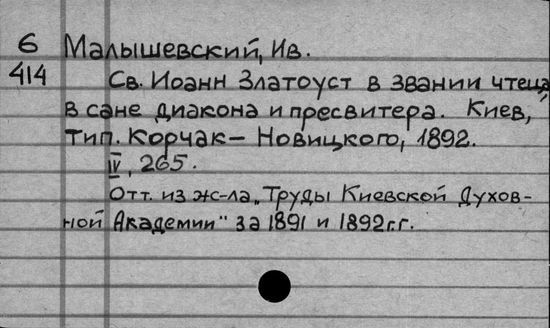 6 Малышевский, Ив.
414 Св. Иоанн Златоуст в звании чтеца,
в сане диакона и пресвитера. Киев,
тип. Корчак-Новицкого, 1892.
IV, 265.
Отт. из ж-ла „Труды Киевской Духов-
ной Академии" за 1891 и 1892 г.г.